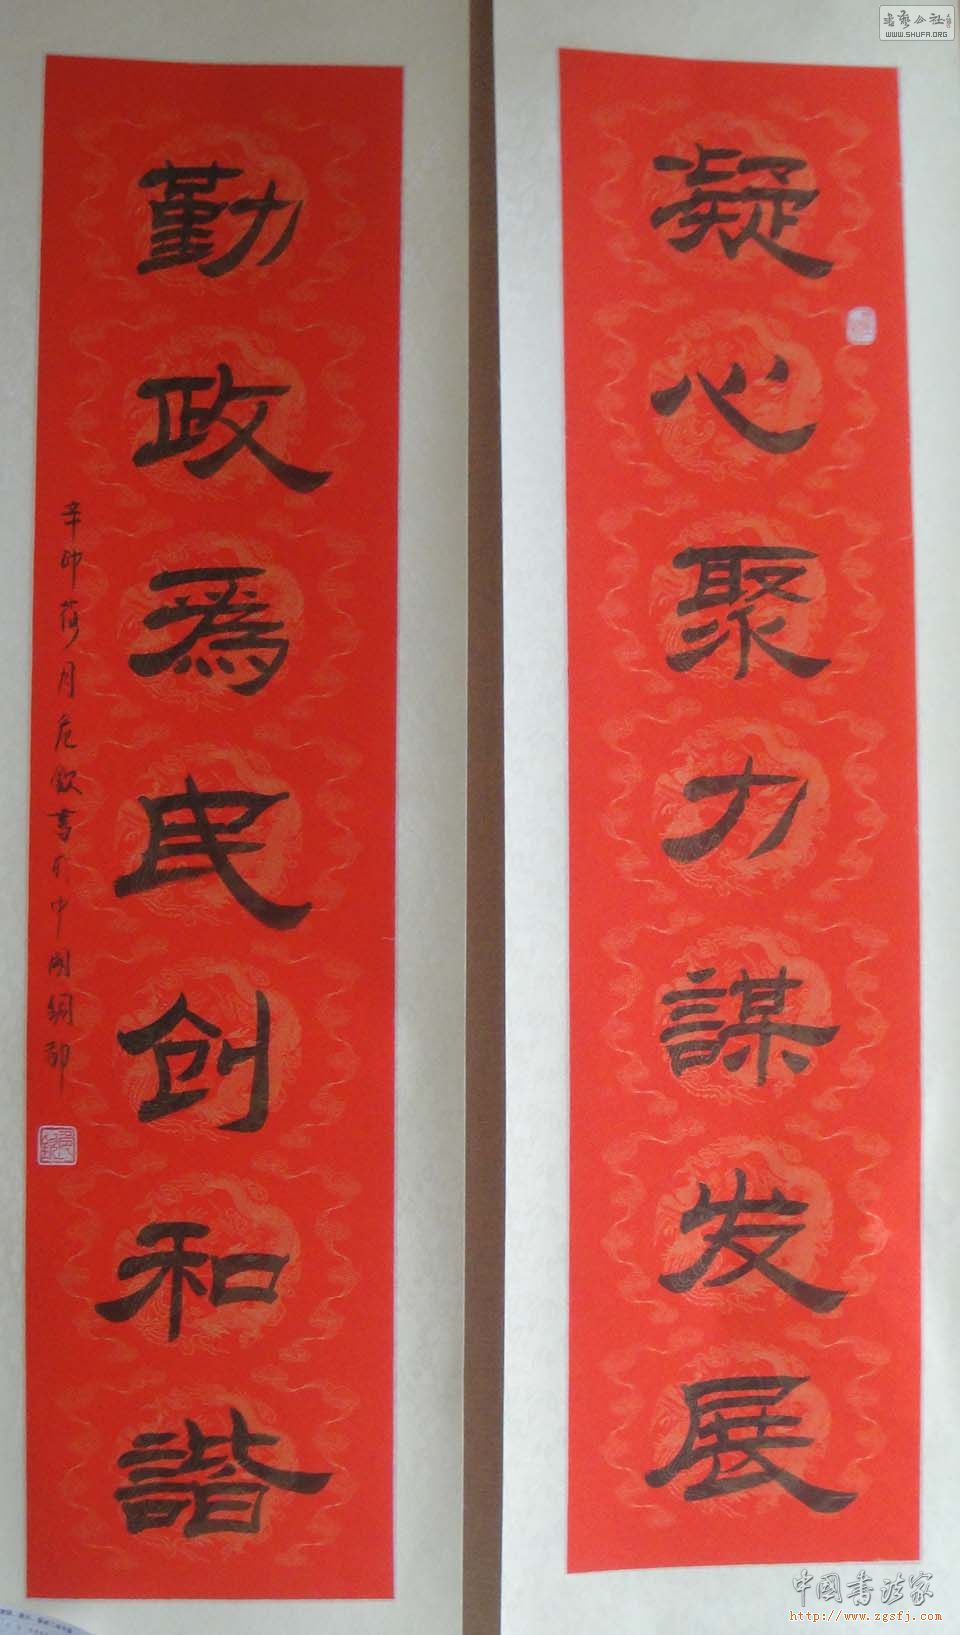 凝心聚力謀发展
勤政爲民创和諧
辛卯荷月危欽書於中国銅都
书艺公社
WWW.SHUFA.ORG
中国书法家
http://www.zgsfj.com